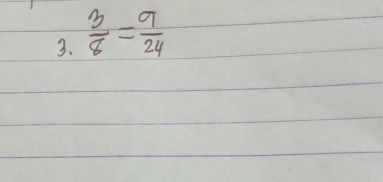 3. 3/8 = 9/24